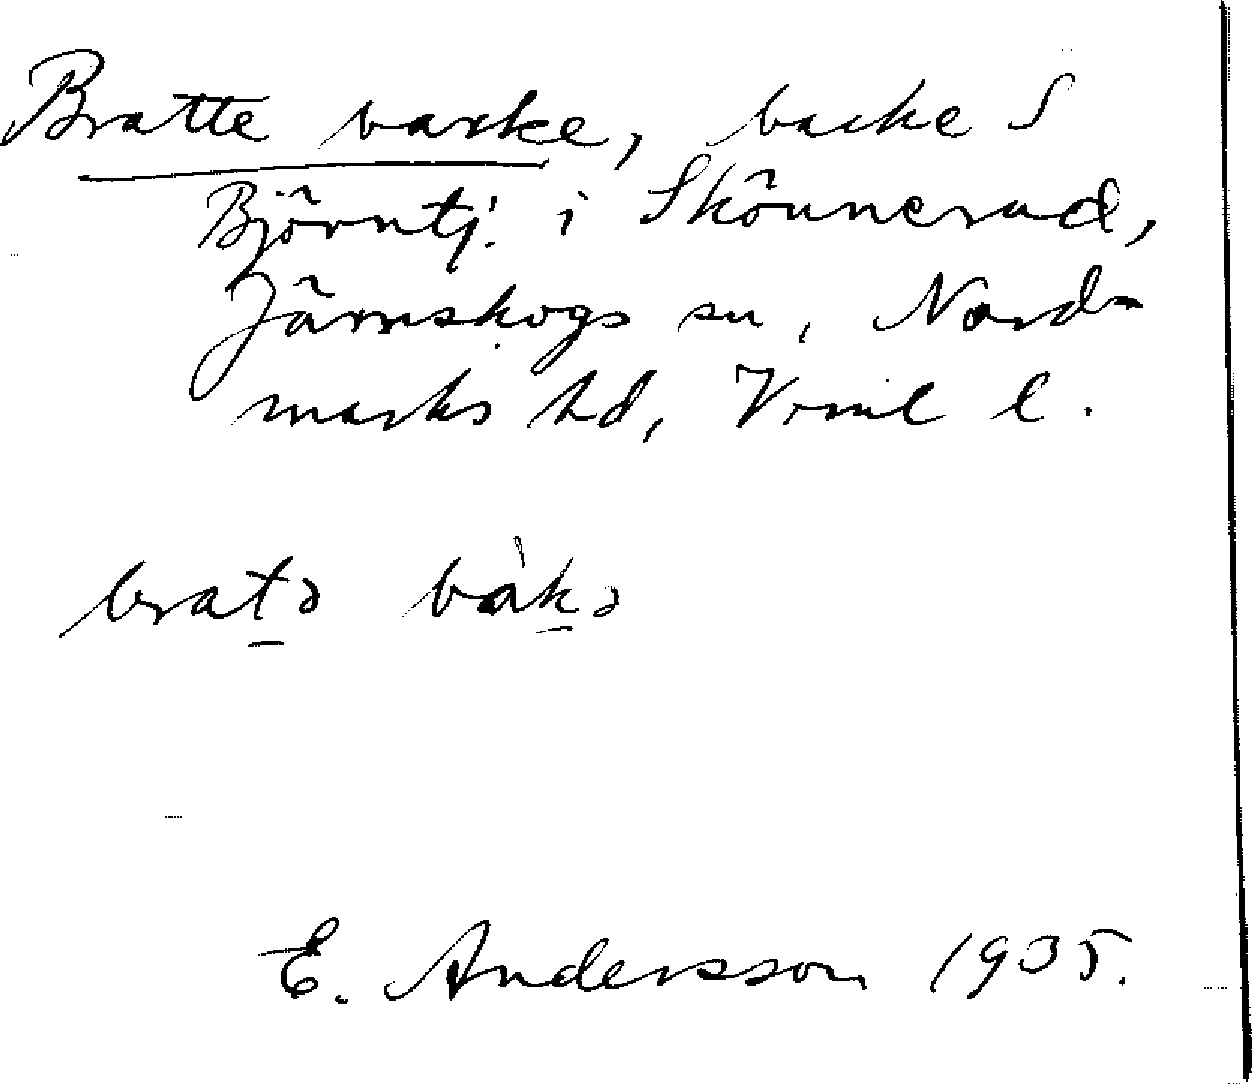 Bratte backe, backe S
Björntj. i Skönnerud,
Järnskogs sn, Nord-
marks hd, Vrml l.
bratə bàkə
E. Andersson 1935.